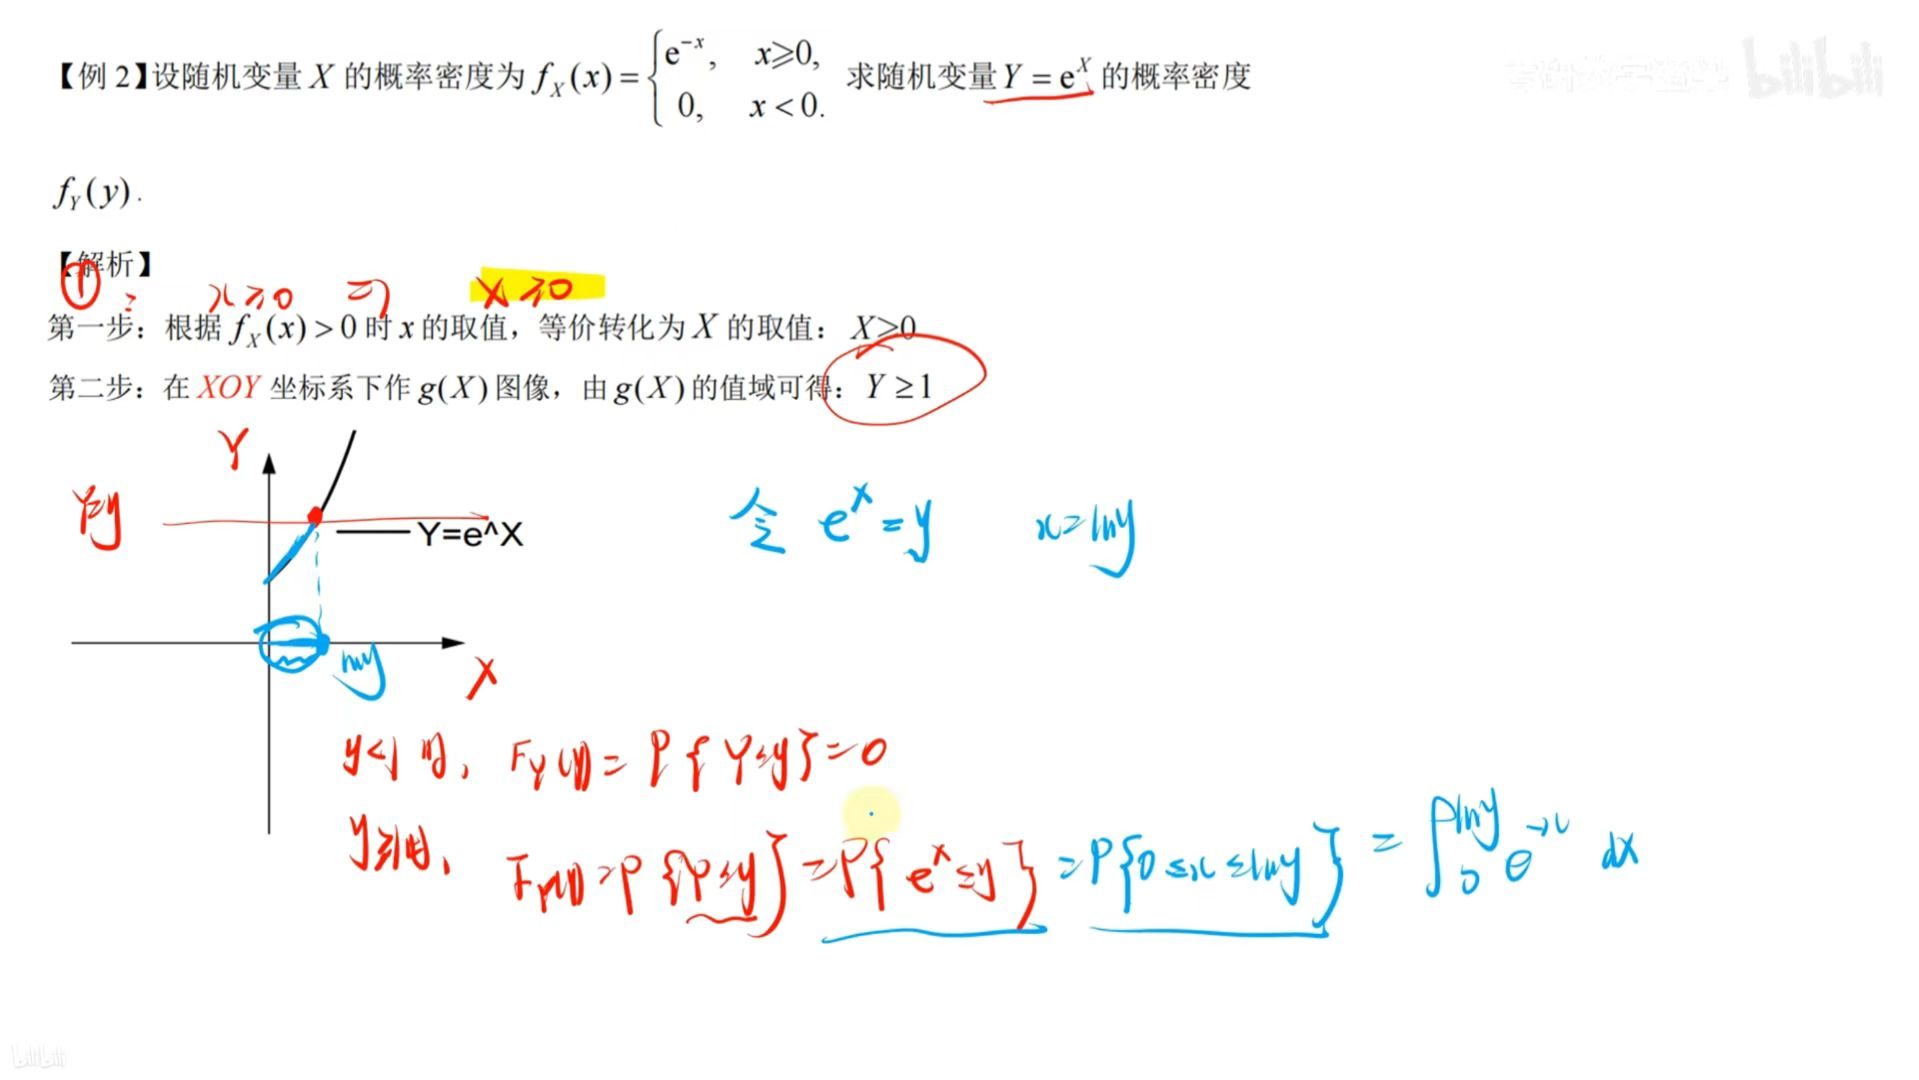 【例 2】设随机变量 X 的概率密度为 f_X(x) = { e^{-x}, x≥0, 0, x<0. 求随机变量 Y = e^X 的概率密度
f_Y(y).
【解析】
① x≥0 ⇒ X≥0
第一步：根据 f_X(x) > 0 时 x 的取值，等价转化为 X 的取值： X≥0
第二步：在 XOY 坐标系下作 g(X) 图像，由 g(X) 的值域可得： Y ≥ 1
Y
Y=y
Y=e^X
令 e^x = y x=lny
lny
X
y<1 时, F_Y(y) = P{Y≤y} = 0
y≥1时, F_Y(y) = P{Y≤y} = P{e^x≤y} = P{0≤x≤lny} = ∫_0^{lny} e^{-x} dx
bilibili
bilibili